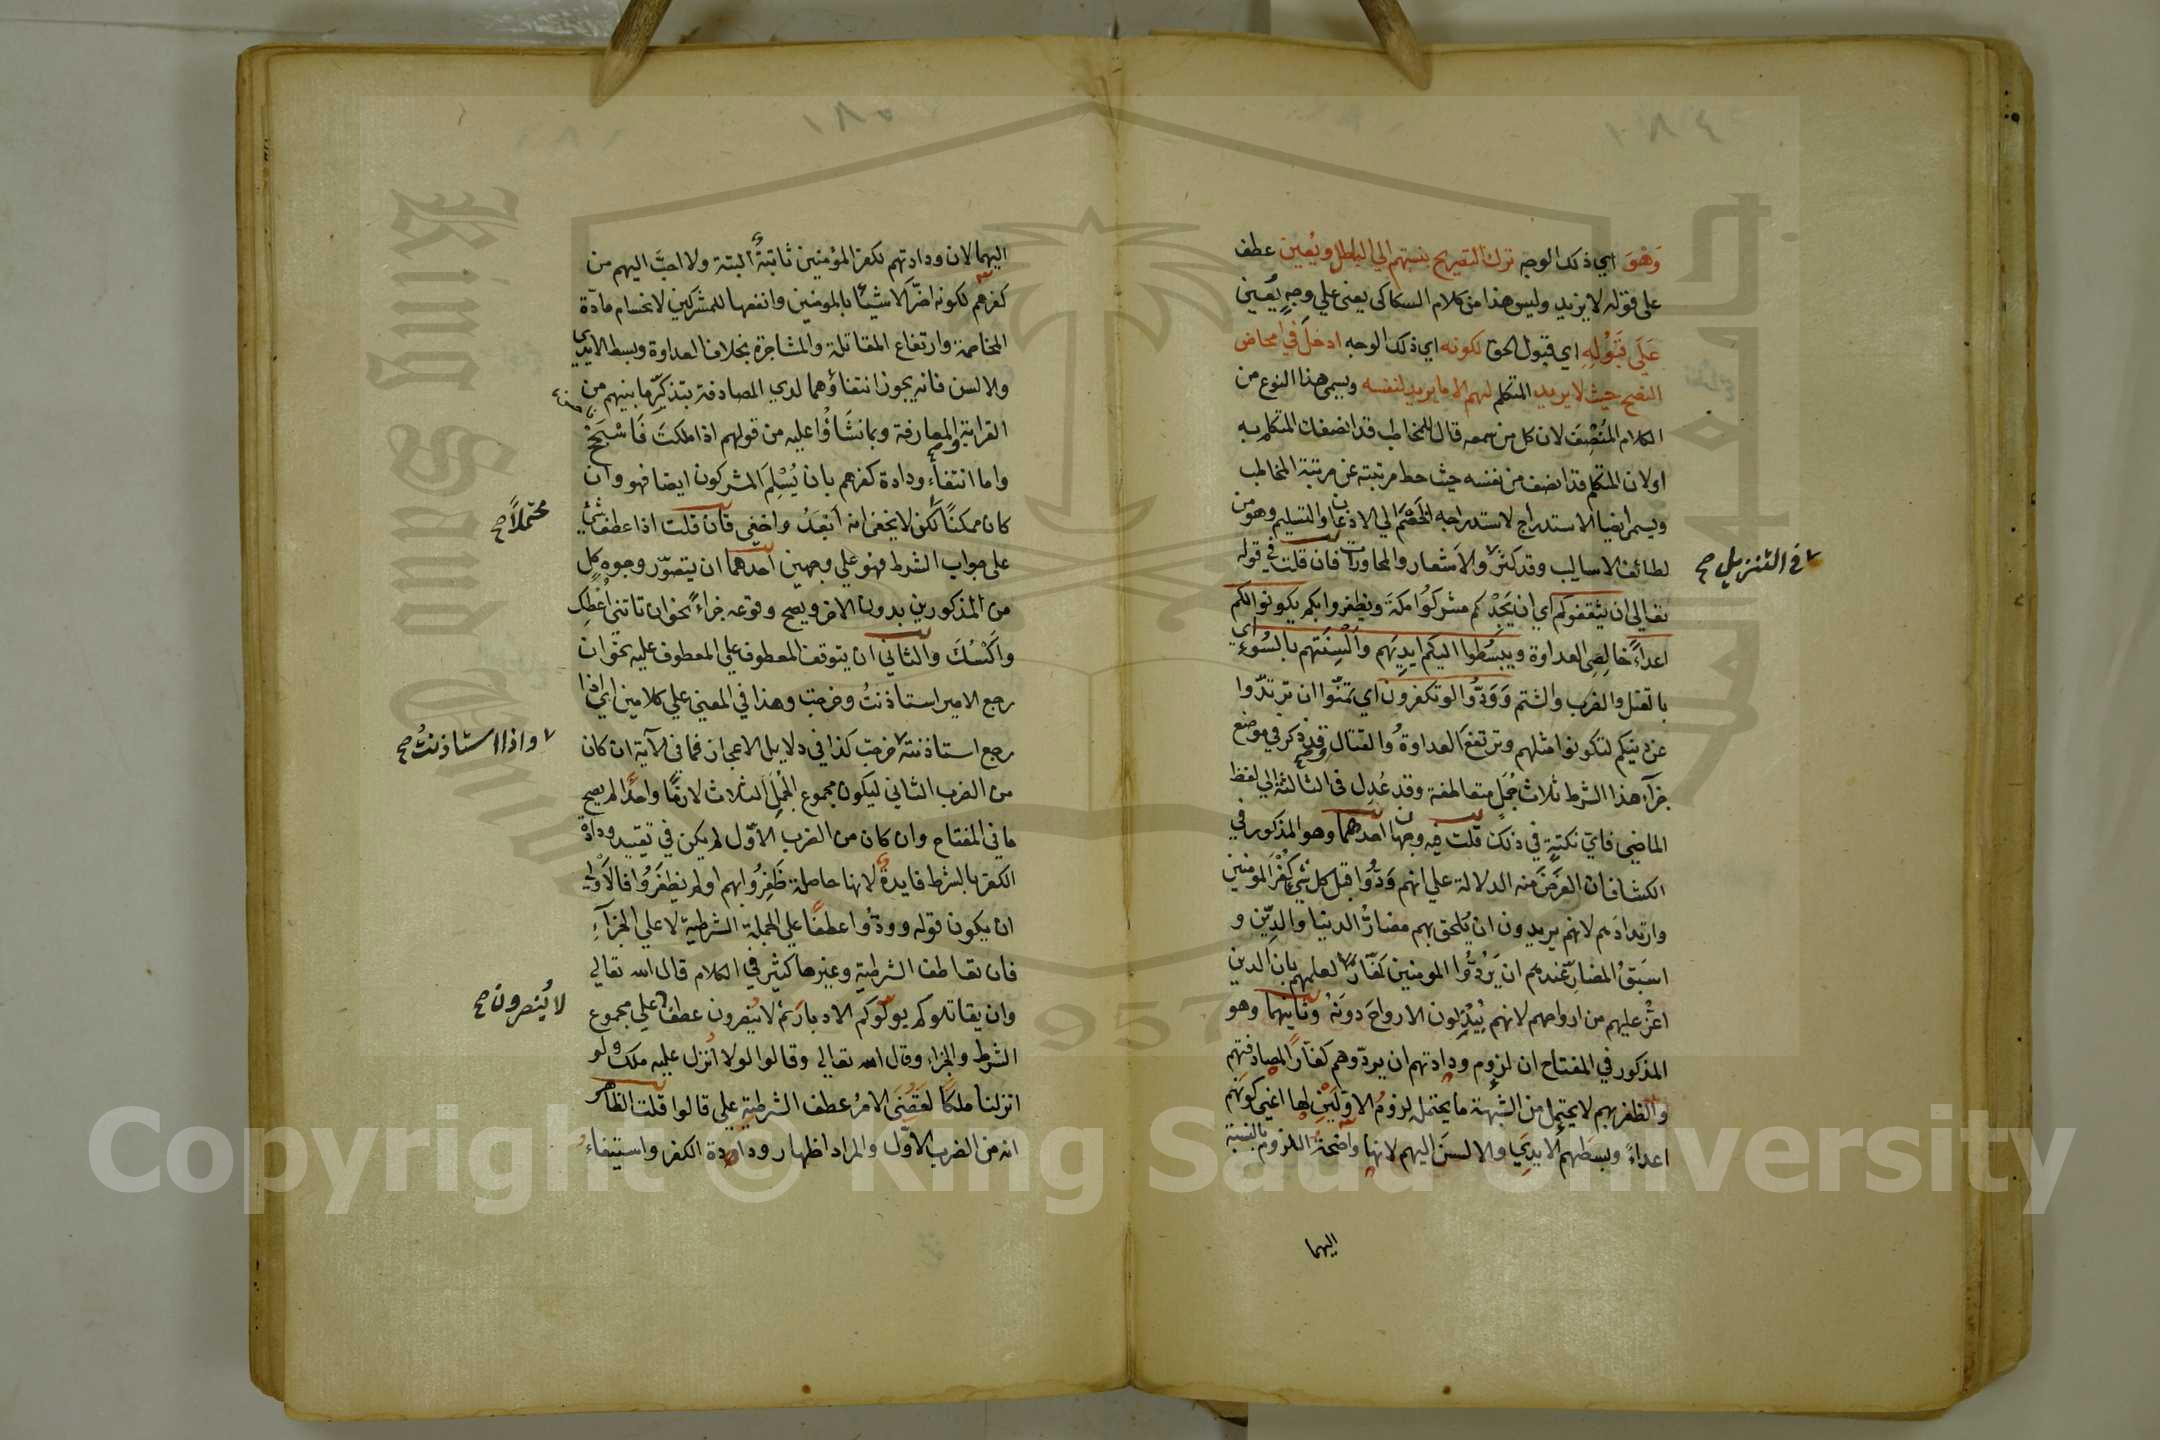 وَهُوَ اي ذلك الوجه ترك التصريح بنسبتهم الي الباطل ويُعين عطف
على قوله لا يزيد وليس هذا من كلام السكاكى يعنى علي وجهٍ يُعين
عَلَي قَبُوْلِهِ اي قبول الحق لكونه اي ذلك الوجه ادخل في امحاض
النصح حيث لا يريد المتكلم لهم الا ما يريد لنفسه ويسمى هذا النوع من
الكلام المُنْصِفَ لان كل من سمعه قال للمخاطب قد انصفك المتكلم به
او لان المتكلم قد انصف من نفسه حيث حط مرتبته عن مرتبة المخاطب
ويسمى ايضا الاستدراج لاستدراجه الخَصْمَ الي الاذعان والتسليم وهو من
لطائف الاساليب وقد كثر والاشعار والمحاورات فان قلت في قوله
في التنزيل صح
تعالى ان يثقفوكم اي ان يَجِدْكم مشركُوا مكة ويظفروا بكم يكونوا لكم
اعداءً خالِصِي العداوة ويبسُطوا اليكم ايديَهم واَلْسِنَتهم بالسُوءِ اي
بالقتل والضرب والشتم وَوَدُّوا لو تكفرون اي تمنّوا ان ترتدّوا
عن دينكم لتكونوا مثلهم وترتفعَ العداوةُ والقتال قد ذكر في موضع
جزآء هذا الشرط ثلاث جُمَلٍ متعاطفة وقد عُدِل فى الثالثة الي لفظ
الماضي فايّ نكتةٍ في ذلك قلت فيه وجهان احدهما وهو المذكور في
الكشاف ان الغرَضَ منه الدلالة علي انهم وَدُّوا قبل كل شيٍ كُفْرَ المومنين
وارتدادَهم لانهم يريدون ان يُلحق بهم مضارُّ الدنيا والدِّين و
اسَبَقُ المضارِّ عندهم ان يَرُدُّوا المومنين كفّارًا لعلمهم بان الدين
اعزّ عليهم من ارواحهم لانهم يُبْذِلون الارواحَ دونَهُ وثانيهما وهو
المذكور في المفتاح ان لزوم ودادتهم ان يردّوهم كفّارًا لمصادفتهم
والظفر بهم لا يحتمل من الشبهة ما يحتمله لزومُ الاوّلَيَنِ لها اعني كونَهم
اعداءً وبسَطَهم الايدِيَ والالسنَ اليهم لانها واضحةُ اللزوم بالنسبة
اليهما
اليهما لان ودادتهم لكفر المؤمنين ثابتةٌ البتة ولا احبَّ اليهم من
كفرهم لكونه اضرّ الاشياء بالمومنين وانفعها للمشركين لانحسام مادّة
المخاصمة وارتفاع المقاتلة والمشاجرة بخلاف العداوة وبسط الايدي
والالسن فانه يجوز انتفاؤهما لدي المصادفة بتذكّر ما بينهم من
القرابة والمعارفة وبما نشَاؤُا عليه من قولهم اذا ملكتَ فَاَسْجَحْ
واما انتفاءُ ودادة كفرهم بان يُسْلِمَ المشركون ايضا فهو وان
كان ممكنًا لكن لا يخفى انه اَبْعَدُ واخفي فان قلت اذا عطف شئ
محتملاً صح
علي جواب الشرط فهو علي وجهين احدهما ان يتصوّر وجوه كلٍ
من المذكورين بدون الاخر ويصح وقوعه جزاءً نحو ان تاتني اُعْطِك
واَكْسُك والثاني ان يتوقف المعطوف علي المعطوف عليه نحو ان
رجع الامير استاذنتُ وخرجت وهذا في المعني علي كلامين اي اذا
رجع استاذنته خرجت كذا في دلايل الاعجاز فما فى الآية ان كان
واذا استاذنتُ صح
من الضرب الثاني ليكون مجموع الجُمَلِ الثلاث لازمًا واحدًا لم يصح
ما في المفتاح وان كان من الضرب الاوّل لم يكن في تقييد ودادة
الكفر بالشرط فايدةٌ لانها حاصلة ظَفِرُوا بهم او لم يَظفَرُوا فالاَوْلي
ان يكون قوله وودُّوا عطفًا علي الجملة الشرطية لا علي الجزآءِ
فان تعاطف الشرطية وغيرها كثير في الكلام قال الله تعالي
وان يقاتلوكم يولّوكم الادبار ثم لا ينصرون عطفٌ علي مجموع
لا يُنصرون صح
الشرط والجزاء وقال الله تعالي وقالوا لولا اُنزل عليه ملك ولو
انزلنا ملكًا لَقُضِيَ الامرُ عطف الشرطية علي قالوا قلت الظاهر
انه من الضرب الاوّل والمراد اظهار ودادة الكفر واستيفاءُ
King Saud University
1957
Copyright © King Saud University